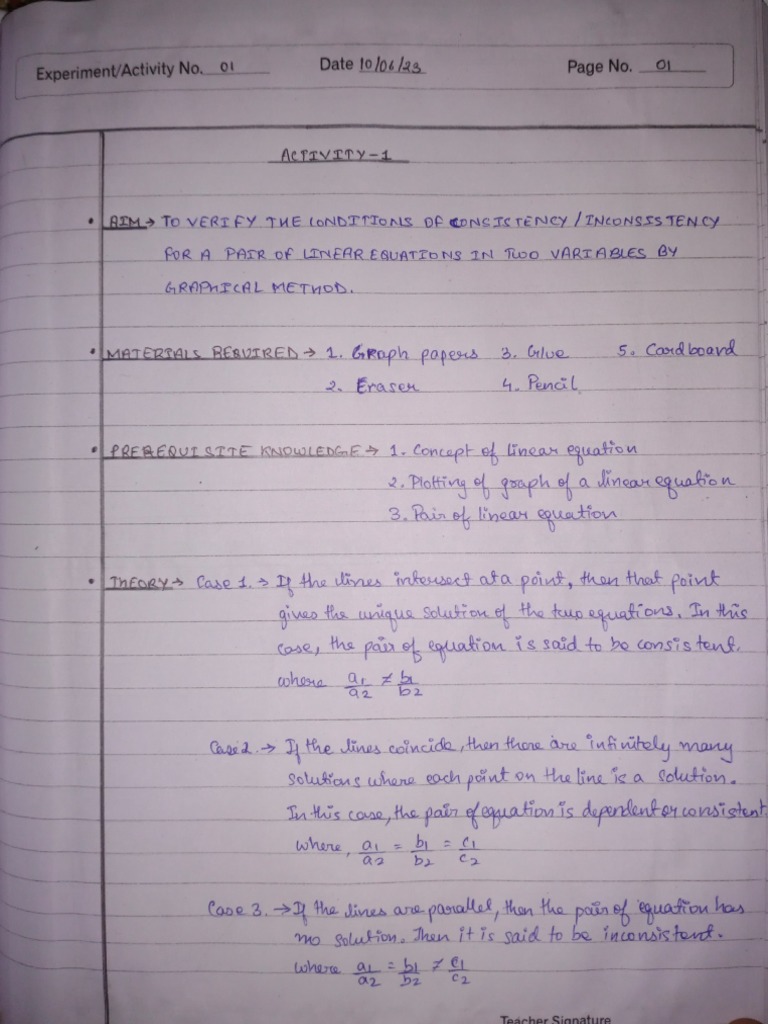 Experiment/Activity No. 01 Date 10/06/23 Page No. 01
ACTIVITY-1
• AIM → TO VERIFY THE CONDITIONS OF CONSISTENCY/INCONSISTENCY
FOR A PAIR OF LINEAR EQUATIONS IN TWO VARIABLES BY
GRAPHICAL METHOD.
• MATERIALS REQUIRED → 1. Graph papers 3. Glue 5. Cardboard
2. Eraser 4. Pencil
• PREREQUISITE KNOWLEDGE → 1. Concept of linear equation
2. Plotting of graph of a linear equation
3. Pair of linear equation
• THEORY → Case 1. → If the lines intersect at a point, then that point
gives the unique solution of the two equations. In this
case, the pair of equation is said to be consistent.
where a1/a2 ≠ b1/b2
Case 2. → If the lines coincide, then there are infinitely many
solutions where each point on the line is a solution.
In this case, the pair of equation is dependent or consistent
where, a1/a2 = b1/b2 = c1/c2
Case 3. → If the lines are parallel, then the pair of equation has
no solution. Then it is said to be inconsistent.
where a1/a2 = b1/b2 ≠ c1/c2
Teacher Signature